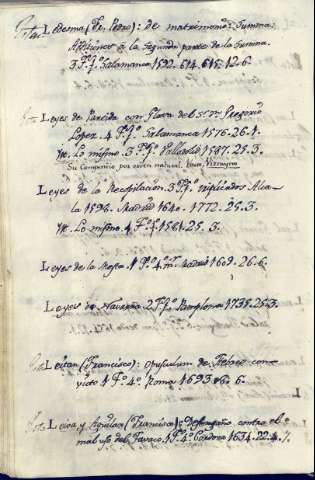 Ledesma (Fr. Pedro): de matrimonio: Summa:
Addiones à la segunda parte de la Summa.
3. Tº. fº. Salamanca 1592. 614. 615. 12. 6.
Leyes de Partida con Glosa del Sr. Dn. Gregorio
Lopez. 4. Tº. fº. Salamanca 1576. 26. 1.
Yt. Lo mismo. 3. Tº. fº. Valladlid 1587. 25. 3.
Su Compendio, por orden natural. Vease, Vizcayno
Leyes de la Recopilacion. 3. Tº. fº. duplicados Alca-
la 1598. Madrid 1640. 1772. 25. 3.
Yt. Lo mismo. 4. Tº. fº. 1581. 25. 3.
Leyes de la Mesta. 1. Tº. fº. Madrid 1609. 26. 6.
Leyes de Navarra 2. Tº. fº. Pamplona 1735. 25. 3.
Leitan (Francisco): opusculum de
1. Tº. 4º. Roma 1693. 6.
Leiva y Aguilar (Francisco): desengaño contra el
mal uso del Tavaco. 1. Tº. 4º. Cordova 1634. 22. 4.